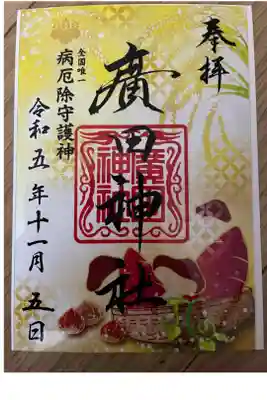 奉拝
廣田神社
廣田神社
全国唯一
病厄除守護神
令和五年十一月五日